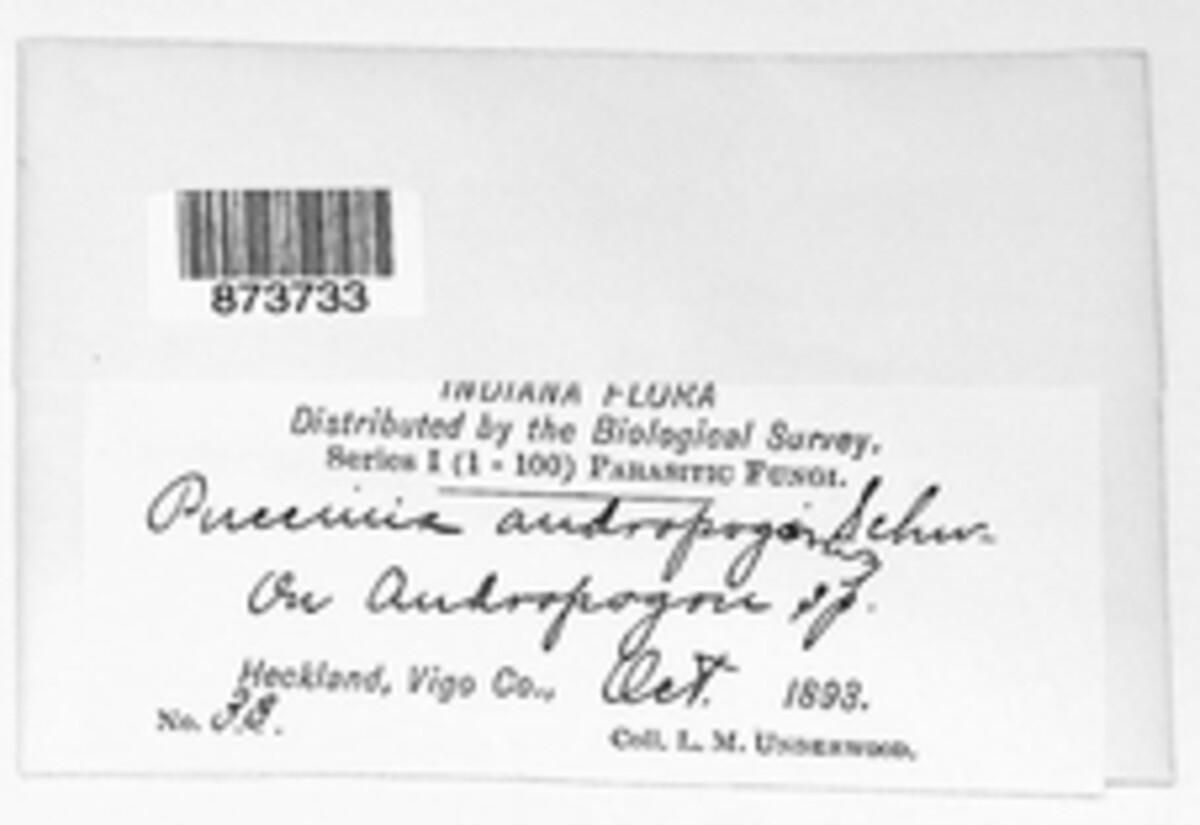 873733
INDIANA FLORA
Distributed by the Biological Survey.
Series I (1-100) PARASITIC FUNGI.
Puccinia andropogonis Schw.
On Andropogon sp.
Heckland, Vigo Co., Oct. 1893.
No. 38.
Coll. L. M. UNDERWOOD.